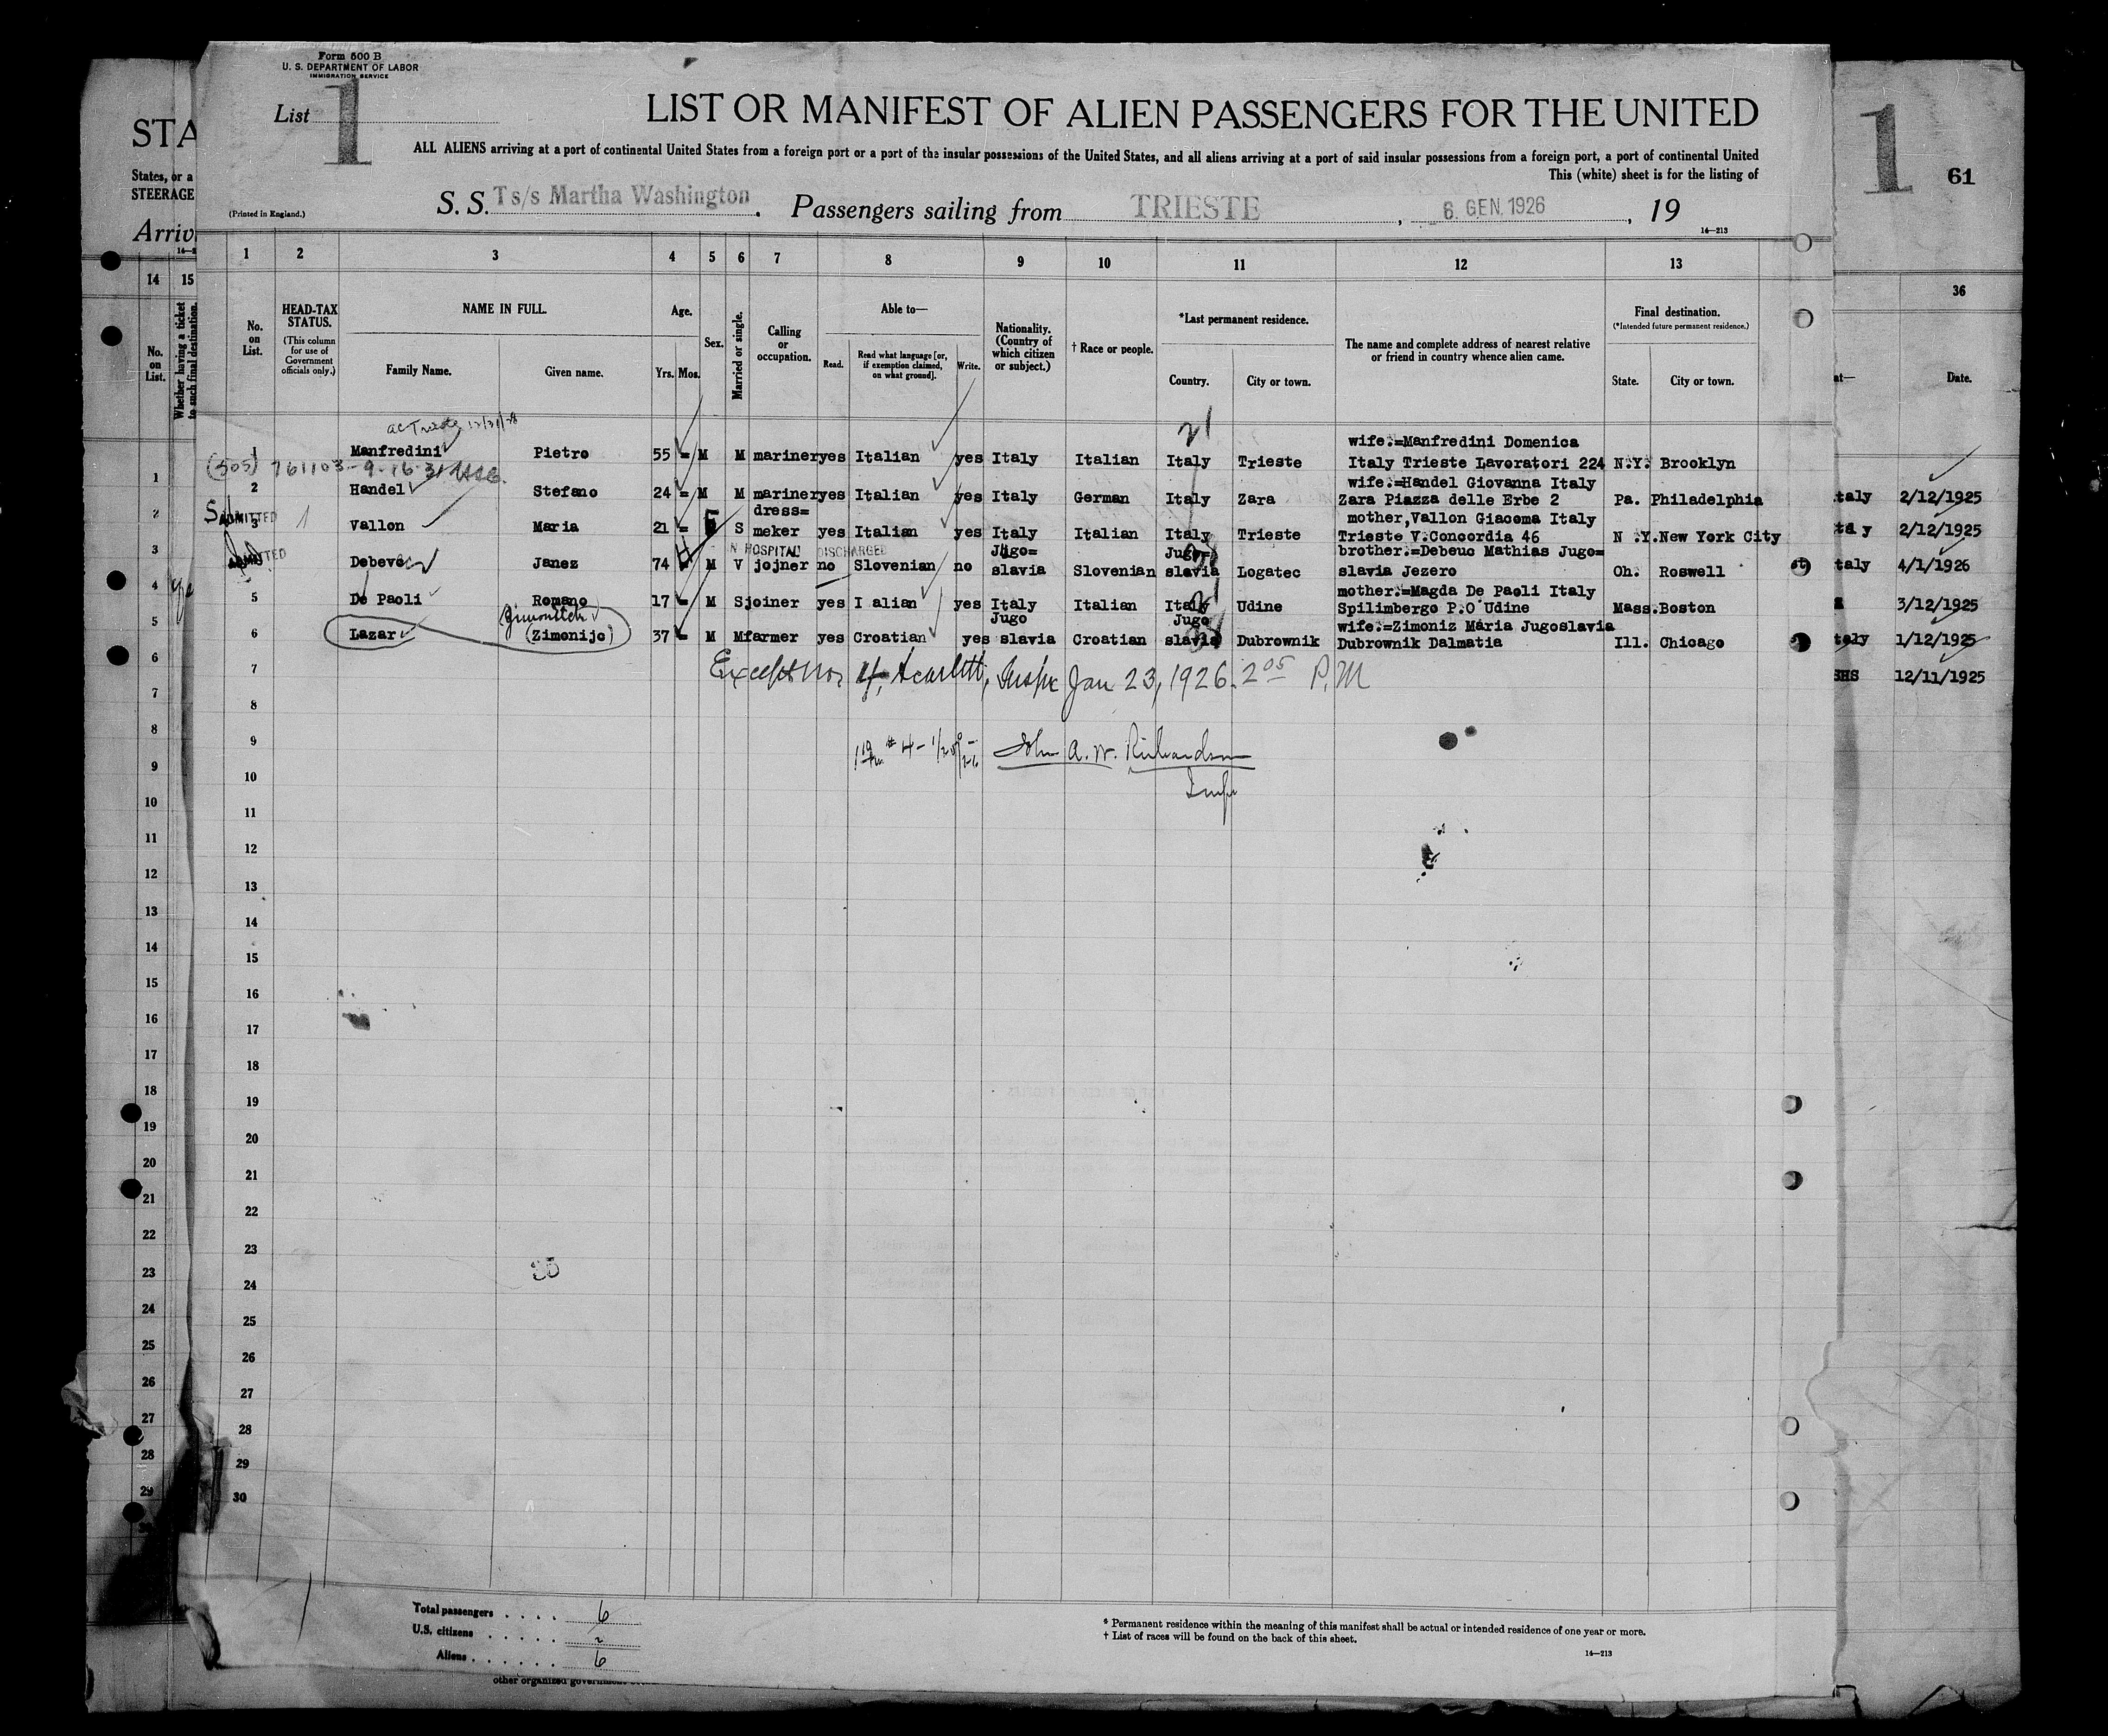 Form 500 B
U. S. DEPARTMENT OF LABOR
IMMIGRATION SERVICE
List 1
LIST OR MANIFEST OF ALIEN PASSENGERS FOR THE UNITED
STA
ALL ALIENS arriving at a port of continental United States from a foreign port or a port of the insular possessions of the United States, and all aliens arriving at a port of said insular possessions from a foreign port, a port of continental United
States, or a
This (white) sheet is for the listing of
STEERAGE
1 61
(Printed in England.)
S. S. Ts/s Martha Washington. Passengers sailing from TRIESTE, 6. GEN. 1926, 19
Arriv
14—213
1 2 3 4 5 6 7 8 9 10 11 12 13
14 15 36
No. on List.
HEAD-TAX STATUS.
(This column for use of Government officials only.)
NAME IN FULL.
Family Name. Given name.
Age.
Yrs. Mos.
Sex.
Married or single.
Calling or occupation.
Able to—
Read. Read what language [or, if exemption claimed, on what ground]. Write.
Nationality. (Country of which citizen or subject.)
† Race or people.
*Last permanent residence.
Country. City or town.
The name and complete address of nearest relative or friend in country whence alien came.
Final destination.
(*Intended future permanent residence.)
State. City or town.
No. on List.
Whether having a ticket to such final destination.
at— Date.
21
wife.=Manfredini Domenica
1 Manfredini Pietro 55 = M M mariner yes Italian yes Italy Italian Italy Trieste Italy Trieste Lavoratori 224 N.Y. Brooklyn
(505) 761103-9-16-31
wife.=Handel Giovanna Italy
2 Handel Stefano 24 = M M mariner yes Italian yes Italy German Italy Zara Zara Piazza delle Erbe 2 Pa. Philadelphia
taly 2/12/1925
dress= mother,Vallon Giacoma Italy
ADMITTED
3 Vallon Maria 21 = S meker yes Italian yes Italy Italian Italy Trieste Trieste V.Concordia 46 N .Y.New York City
2/12/1925
IN HOSPITAL DISCHARGED
Jugo= Jugo= brother.=Debeuc Mathias Jugo=
ADMITTED
Debevc Janez 74 = M V jojner no Slovenian no slavia Slovenian slavia Logatec slavia Jezero Oh. Roswell
taly 4/1/1926
mother.=Magda De Paoli Italy
5 De Paoli Romano 17 = M S joiner yes I alian yes Italy Italian Italy Udine Spilimbergo P.O Udine Mass. Boston
3/12/1925
Jugo Jugo wife.=Zimoniz Maria Jugoslavia
6 Lazar (Zimonijc) 37 = M M farmer yes Croatian yes slavia Croatian slavia Dubrownik Dubrownik Dalmatia Ill. Chicago
1/12/1925
Except No. 4, Scarlett, Inspr Jan 23, 1926. 2 05 P.M
SHS 12/11/1925
John A. W. Richardson
Insp
7
8
9
10
11
12
13
14
15
16
17
18
19
20
21
22
23
24
25
26
27
28
29
30
35
Total passengers . . . . 6
U.S. citizens . . . . .
Aliens . . . . . . 6
* Permanent residence within the meaning of this manifest shall be actual or intended residence of one year or more.
† List of races will be found on the back of this sheet.
14—213
other organized government